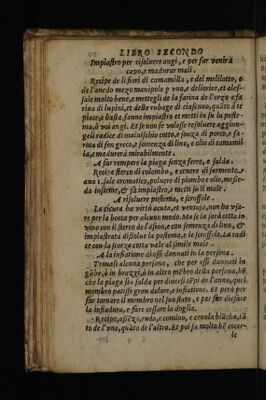 LIBRO SECONDO
Impiastro per risoluere angi, e per far venir à
capo, e madurar mali.
Recipe de li fiori di camamilla, e del melilotto, o
de l'anedo mezo manipolo p vno, de liorine, et alef-
sale molto bene, e mettegli de la farina de l'orzo e fa
rina di lupini, et de delle rubuge di ciascuno, quāto à te
piace, e basta. fanne impiastro et metti in su la poste-
ma, ò voi angi. Et se non se volesse resoluere aggiun-
geli radice di maluischio cotto, e sonza di porco, e fa-
rina di fen greco, e somenza di lino, e olio di camamil
la, e madurerà mirabilmente.
A far rompere la piaga senza ferro, e salda.
Recipe sterco di colombo, e cenere di sermente,
ana sale aromatico, poluere di piombo e olio, mesce-
da insieme, & fà impiastro, e metti sù li male.
A risoluere postema, e scroffole.
La cicuta hà virtù acuta, et ventosa, non hà vsa-
re per la bocca per alcuno modo. Ma se la sarà cotta in
vino con il sterco de l'asino, e con semenza del lino, &
impiastrata dissolue la postema, e le scroffole. La radi
ce con la scorza cotta vale al simile male.
A la infiatione di assi dannati in la persona.
Trouasi alcuna persona, che per assi dannati in
gābe, ò in brazzi, ò in altro mēbro della persona, bē
che la piaga sia salda per diuersi tēpi de l'anno, quel
membro patisse gran dolore, e infiatione. Et però per
far tornare il membro nel suo stato, e per far disfare
la infiadura, e fare cessare la doglia.
Recipe, assēzo, ruda, e comino, e ceuola biācha, tā,
to de l'vno, quāto de l'altro. Et poi fa molto bē cocer-
le